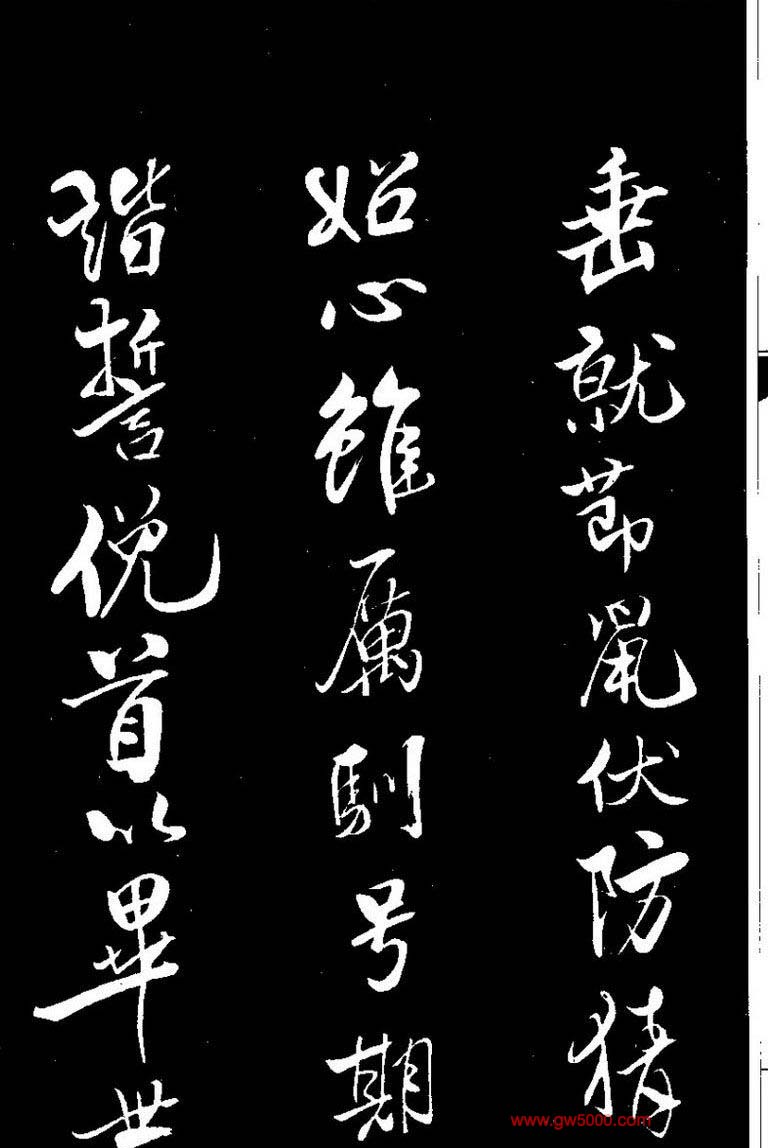 垂就節鼠伏防猜
妬心雖厲馴号期
諧誓俛首以畢世
www.gw5000.com